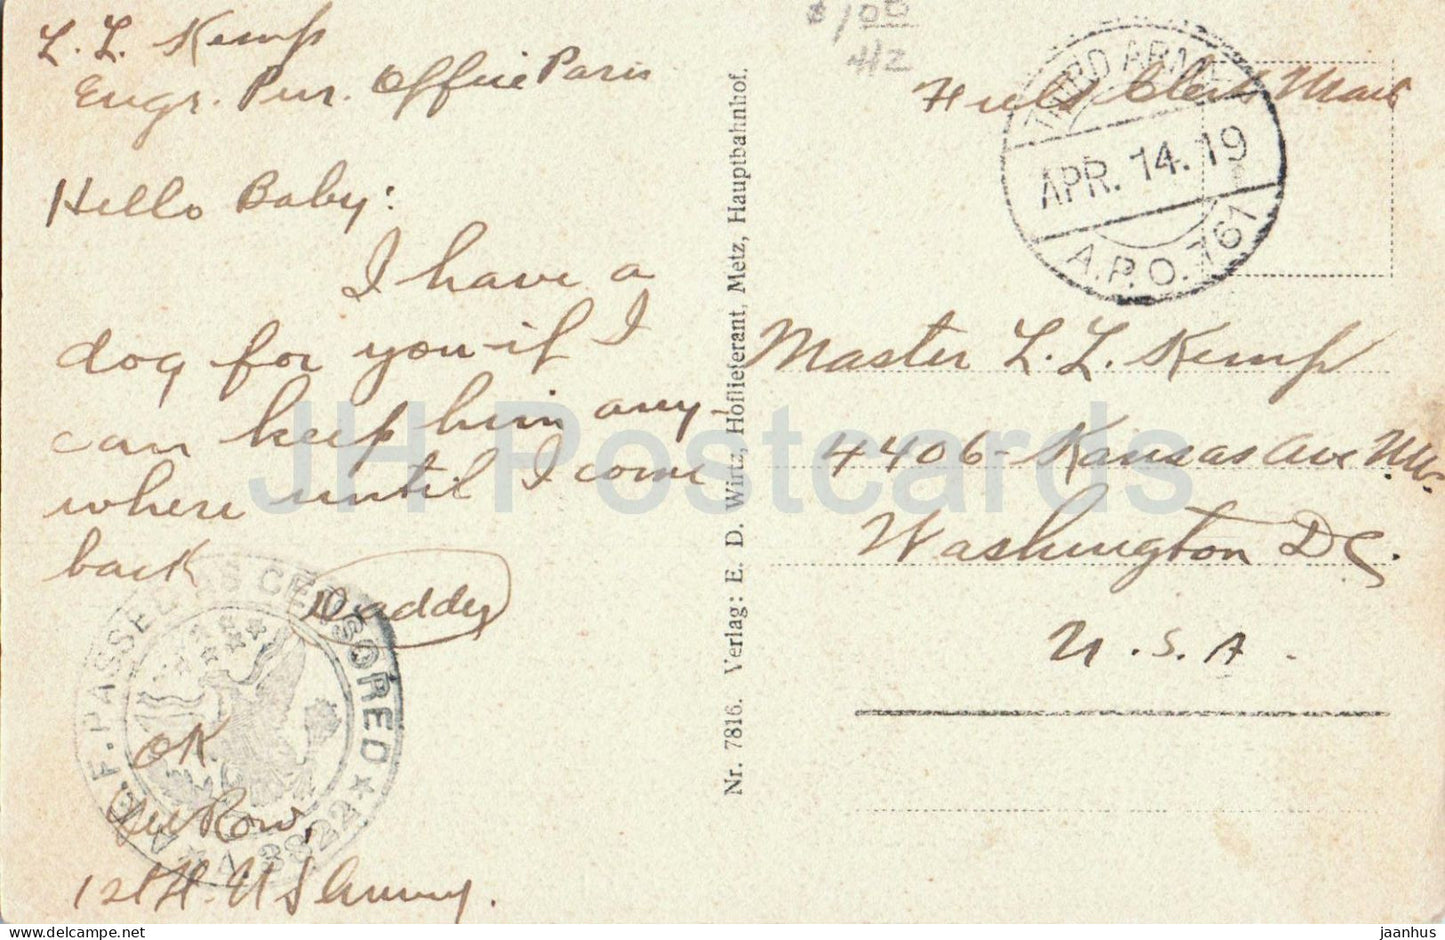 L. L. Kemp
Engr. Pur. Office Paris
Hello Baby:
I have a
dog for you if I
can keep him any-
where until I come
back
Daddy
A.E.F. PASSED AS CENSORED
OK.
1st Lt. U S Army.
Nr. 7816. Verlag: E. D. Wirtz, Hoflieferant, Metz, Hauptbahnhof.
$1.00
412
Mail
THIRD ARMY
APR. 14. 19
A.P.O. 761
Master L. L. Kemp
4406- Kansas Ave N.W.
Washington DC.
U.S.A.
JH Postcards
jaanhus